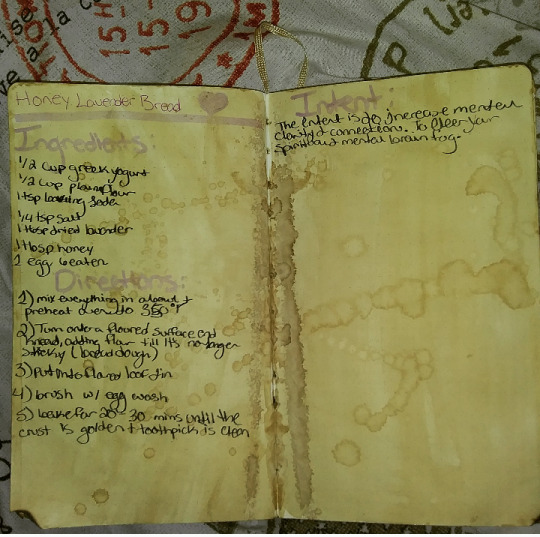 Honey Lavender Bread
Ingredients:
1/2 cup greek yogurt
1/2 cup plain flour
1 tsp baking soda
1/4 tsp salt
1 tbsp dried lavender
1 tbsp honey
1 egg beaten
Directions:
1) mix everything in a bowl +
preheat oven to 350°F
2) Turn onto a floured surface and
knead, adding flour till it's no longer
sticky (bread dough)
3) Put into floured loaf tin
4) brush w/ egg wash
5) bake for 20-30 mins until the
crust is golden + toothpick is clean
Intent:
The intent is to increase mental
clarity & connections. To clear your
spirit but mental brain fog.
15-H
15-
19-